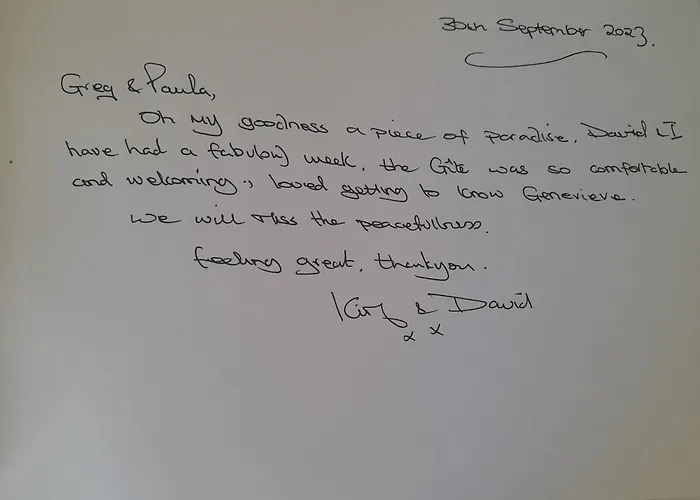 30th September 2023.
Greg & Paula,
Oh my goodness a piece of paradise. David & I
have had a fabulous week, the Gîte was so comfortable
and welcoming, loved getting to know Genevieve.
We will miss the peacefullness.
feeling great, thankyou.
& David
x x